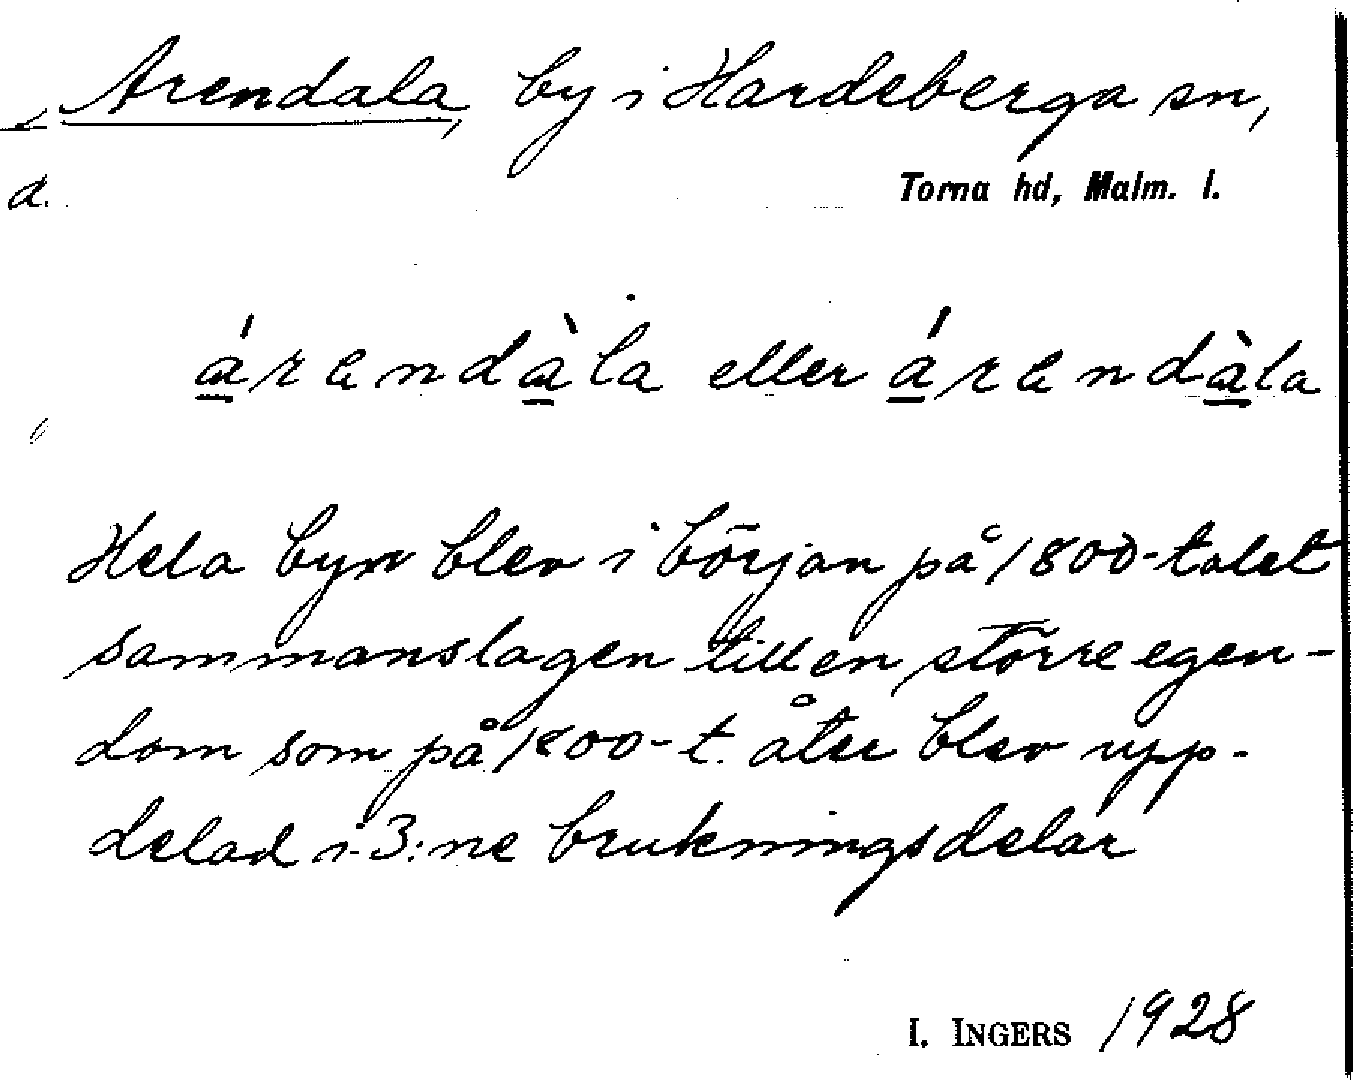 Arendala, by i Hardeberga sn,
d.
Torna hd, Malm. l.
árendàla eller árendàla
Hela byn blev i början på 1800-talet
sammanslagen till en större egen-
dom som på 1800-t. åter blev upp-
delad i 3:ne brukningsdelar
I. INGERS 1928